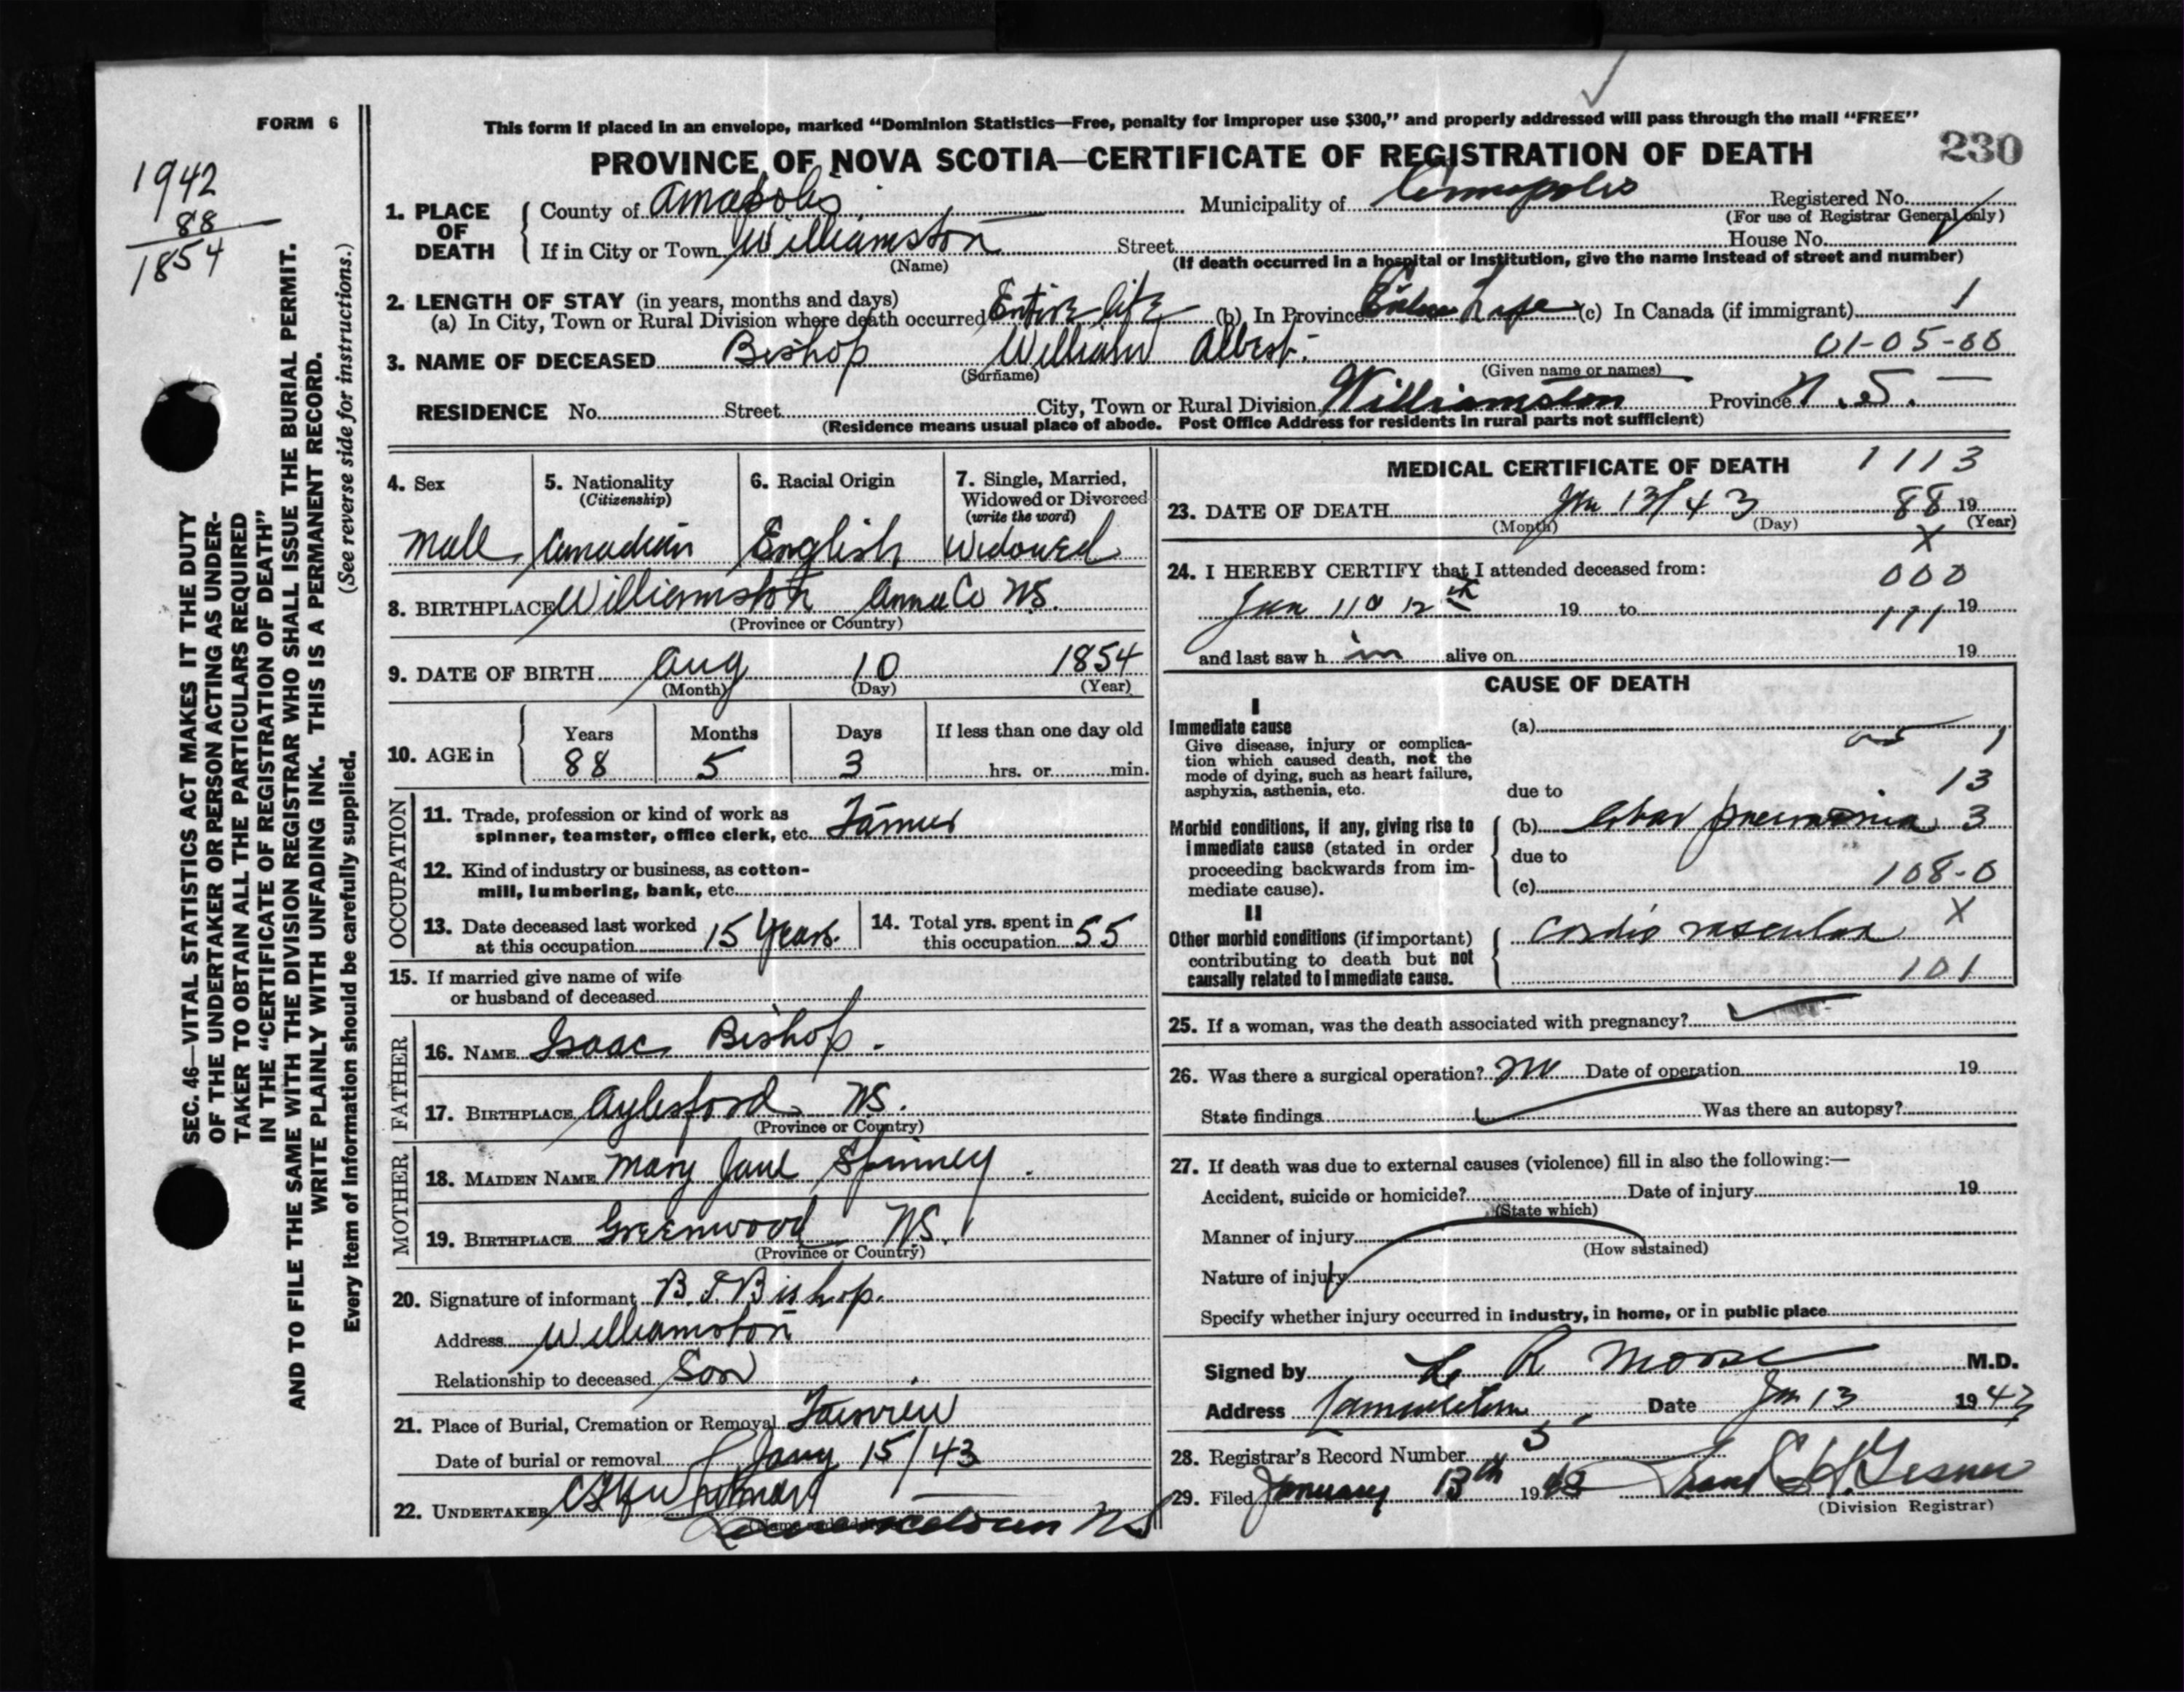 FORM 6
1942
88
1854
This form if placed in an envelope, marked "Dominion Statistics—Free, penalty for improper use $300," and properly addressed will pass through the mail "FREE"
PROVINCE OF NOVA SCOTIA—CERTIFICATE OF REGISTRATION OF DEATH
230
SEC. 46—VITAL STATISTICS ACT MAKES IT THE DUTY
OF THE UNDERTAKER OR PERSON ACTING AS UNDER-
TAKER TO OBTAIN ALL THE PARTICULARS REQUIRED
IN THE "CERTIFICATE OF REGISTRATION OF DEATH"
AND TO FILE THE SAME WITH THE DIVISION REGISTRAR WHO SHALL ISSUE THE BURIAL PERMIT.
WRITE PLAINLY WITH UNFADING INK. THIS IS A PERMANENT RECORD.
Every item of information should be carefully supplied. (See reverse side for instructions.)
1. PLACE OF DEATH
County of Annapolis Municipality of Annapolis Registered No.
(For use of Registrar General only)
If in City or Town Williamston Street House No.
(Name) (If death occurred in a hospital or institution, give the name instead of street and number)
2. LENGTH OF STAY (in years, months and days)
(a) In City, Town or Rural Division where death occurred Entire life (b) In Province Entire Life (c) In Canada (if immigrant) 1
3. NAME OF DECEASED Bishop William Albert 01-05-00
(Surname) (Given name or names)
RESIDENCE No. Street City, Town or Rural Division Williamston Province N.S.
(Residence means usual place of abode. Post Office Address for residents in rural parts not sufficient)
4. Sex 5. Nationality (Citizenship) 6. Racial Origin 7. Single, Married, Widowed or Divorced (write the word)
Male Canadian English Widowed
8. BIRTHPLACE Williamston Anna Co NS.
(Province or Country)
9. DATE OF BIRTH Aug 10 1854
(Month) (Day) (Year)
10. AGE in Years Months Days If less than one day old
88 5 3 hrs. or min.
OCCUPATION
11. Trade, profession or kind of work as
spinner, teamster, office clerk, etc. Farmer
12. Kind of industry or business, as cotton-
mill, lumbering, bank, etc.
13. Date deceased last worked at this occupation 15 Years. 14. Total yrs. spent in this occupation 55
15. If married give name of wife
or husband of deceased
FATHER
16. NAME Isaac Bishop.
17. BIRTHPLACE Aylesford NS.
(Province or Country)
MOTHER
18. MAIDEN NAME Mary Jane Spinney.
19. BIRTHPLACE Greenwood NS.
(Province or Country)
20. Signature of informant B. F Bishop.
Address Williamston
Relationship to deceased Son
21. Place of Burial, Cremation or Removal Fairview
Date of burial or removal Jany 15/43
22. UNDERTAKER
Lawrencetown NS
MEDICAL CERTIFICATE OF DEATH 1113
23. DATE OF DEATH Jan 13/43 88 19
(Month) (Day) (Year)
X
24. I HEREBY CERTIFY that I attended deceased from: 000
Jan 12th 19 to 19
111
and last saw h im alive on 19
CAUSE OF DEATH
I
Immediate cause (a)
Give disease, injury or complica-
tion which caused death, not the
mode of dying, such as heart failure,
asphyxia, asthenia, etc. due to 13
Morbid conditions, if any, giving rise to (b) Lobar pneumonia 3
immediate cause (stated in order due to
proceeding backwards from im-
mediate cause). (c) 108-0
II
Other morbid conditions (if important) cardio vascular X
contributing to death but not
causally related to immediate cause. 101
25. If a woman, was the death associated with pregnancy?
26. Was there a surgical operation? no Date of operation 19
State findings Was there an autopsy?
27. If death was due to external causes (violence) fill in also the following:—
Accident, suicide or homicide? Date of injury 19
(State which)
Manner of injury
(How sustained)
Nature of injury
Specify whether injury occurred in industry, in home, or in public place
Signed by L R Morse M.D.
Address Lawrencetown Date Jan 13 1943
28. Registrar's Record Number 3
29. Filed January 13th 1943 Gesner
(Division Registrar)